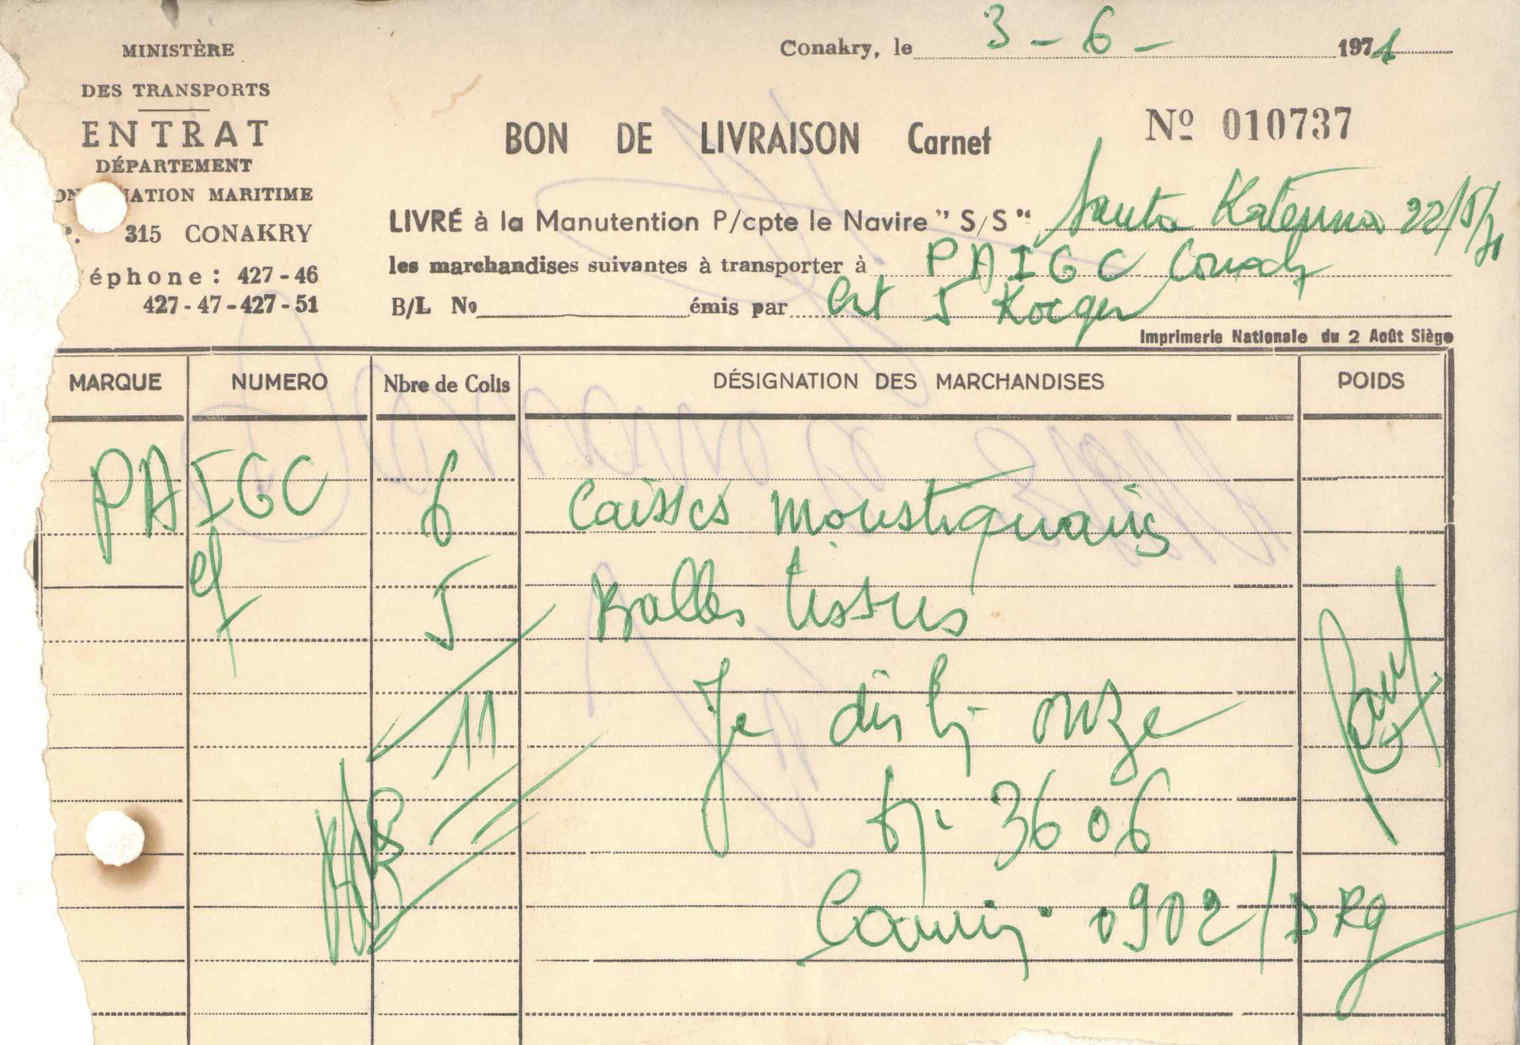 MINISTÈRE
DES TRANSPORTS
ENTRAT
DÉPARTEMENT
ATION MARITIME
315 CONAKRY
éphone: 427-46
427-47-427-51
Conakry, le 3-6-1971
BON DE LIVRAISON Carnet
Nº 010737
LIVRÉ à la Manutention P/cpte le Navire "S/S" Santa Katerina 22/5/71
les marchandises suivantes à transporter à PAIGC Conacky
B/L No émis par
Imprimerie Nationale du 2 Août Siège
MARQUE NUMERO Nbre de Colis DÉSIGNATION DES MARCHANDISES POIDS
PAIGC 6 Caisses moustiquaires
ef 5 Balles tissus
11 Je dis onze
3606
Camion 0902/PRG